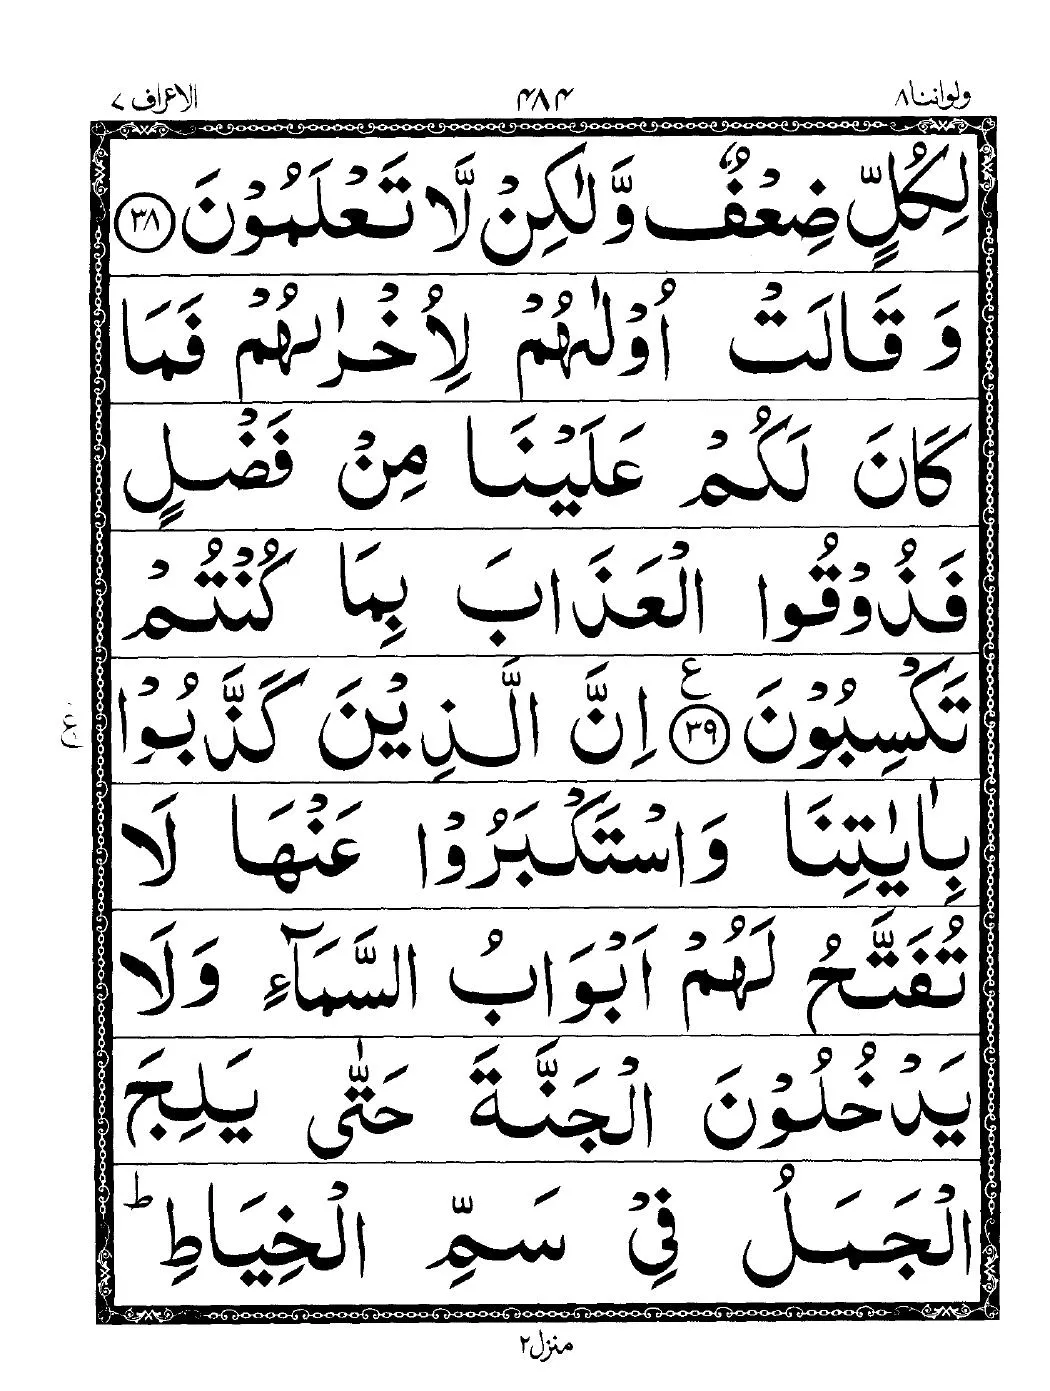 ولواننا ٨ ۴۸۴ الاعراف ٧
لِكُلٍّ ضِعْفٌ وَّلٰكِنْ لَّا تَعْلَمُوْنَ ﴿۳۸﴾
وَ قَالَتْ اُوْلٰىهُمْ لِاُخْرٰىهُمْ فَمَا
كَانَ لَكُمْ عَلَيْنَا مِنْ فَضْلٍ
فَذُوْقُوا الْعَذَابَ بِمَا كُنْتُمْ
تَكْسِبُوْنَ ﴿۳۹﴾ ع اِنَّ الَّذِيْنَ كَذَّبُوْا
بِاٰيٰتِنَا وَاسْتَكْبَرُوْا عَنْهَا لَا
تُفَتَّحُ لَهُمْ اَبْوَابُ السَّمَآءِ وَلَا
يَدْخُلُوْنَ الْجَنَّةَ حَتّٰى يَلِجَ
الْجَمَلُ فِيْ سَمِّ الْخِيَاطِ ط
منزل ۲